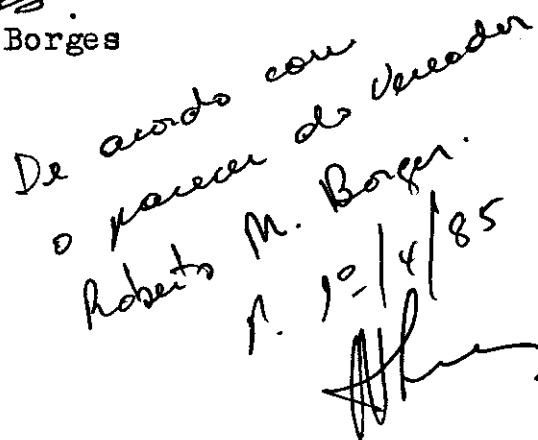 Borges
De acordo com
o parecer do Vereador
Roberto M. Borges.
1º/4/85